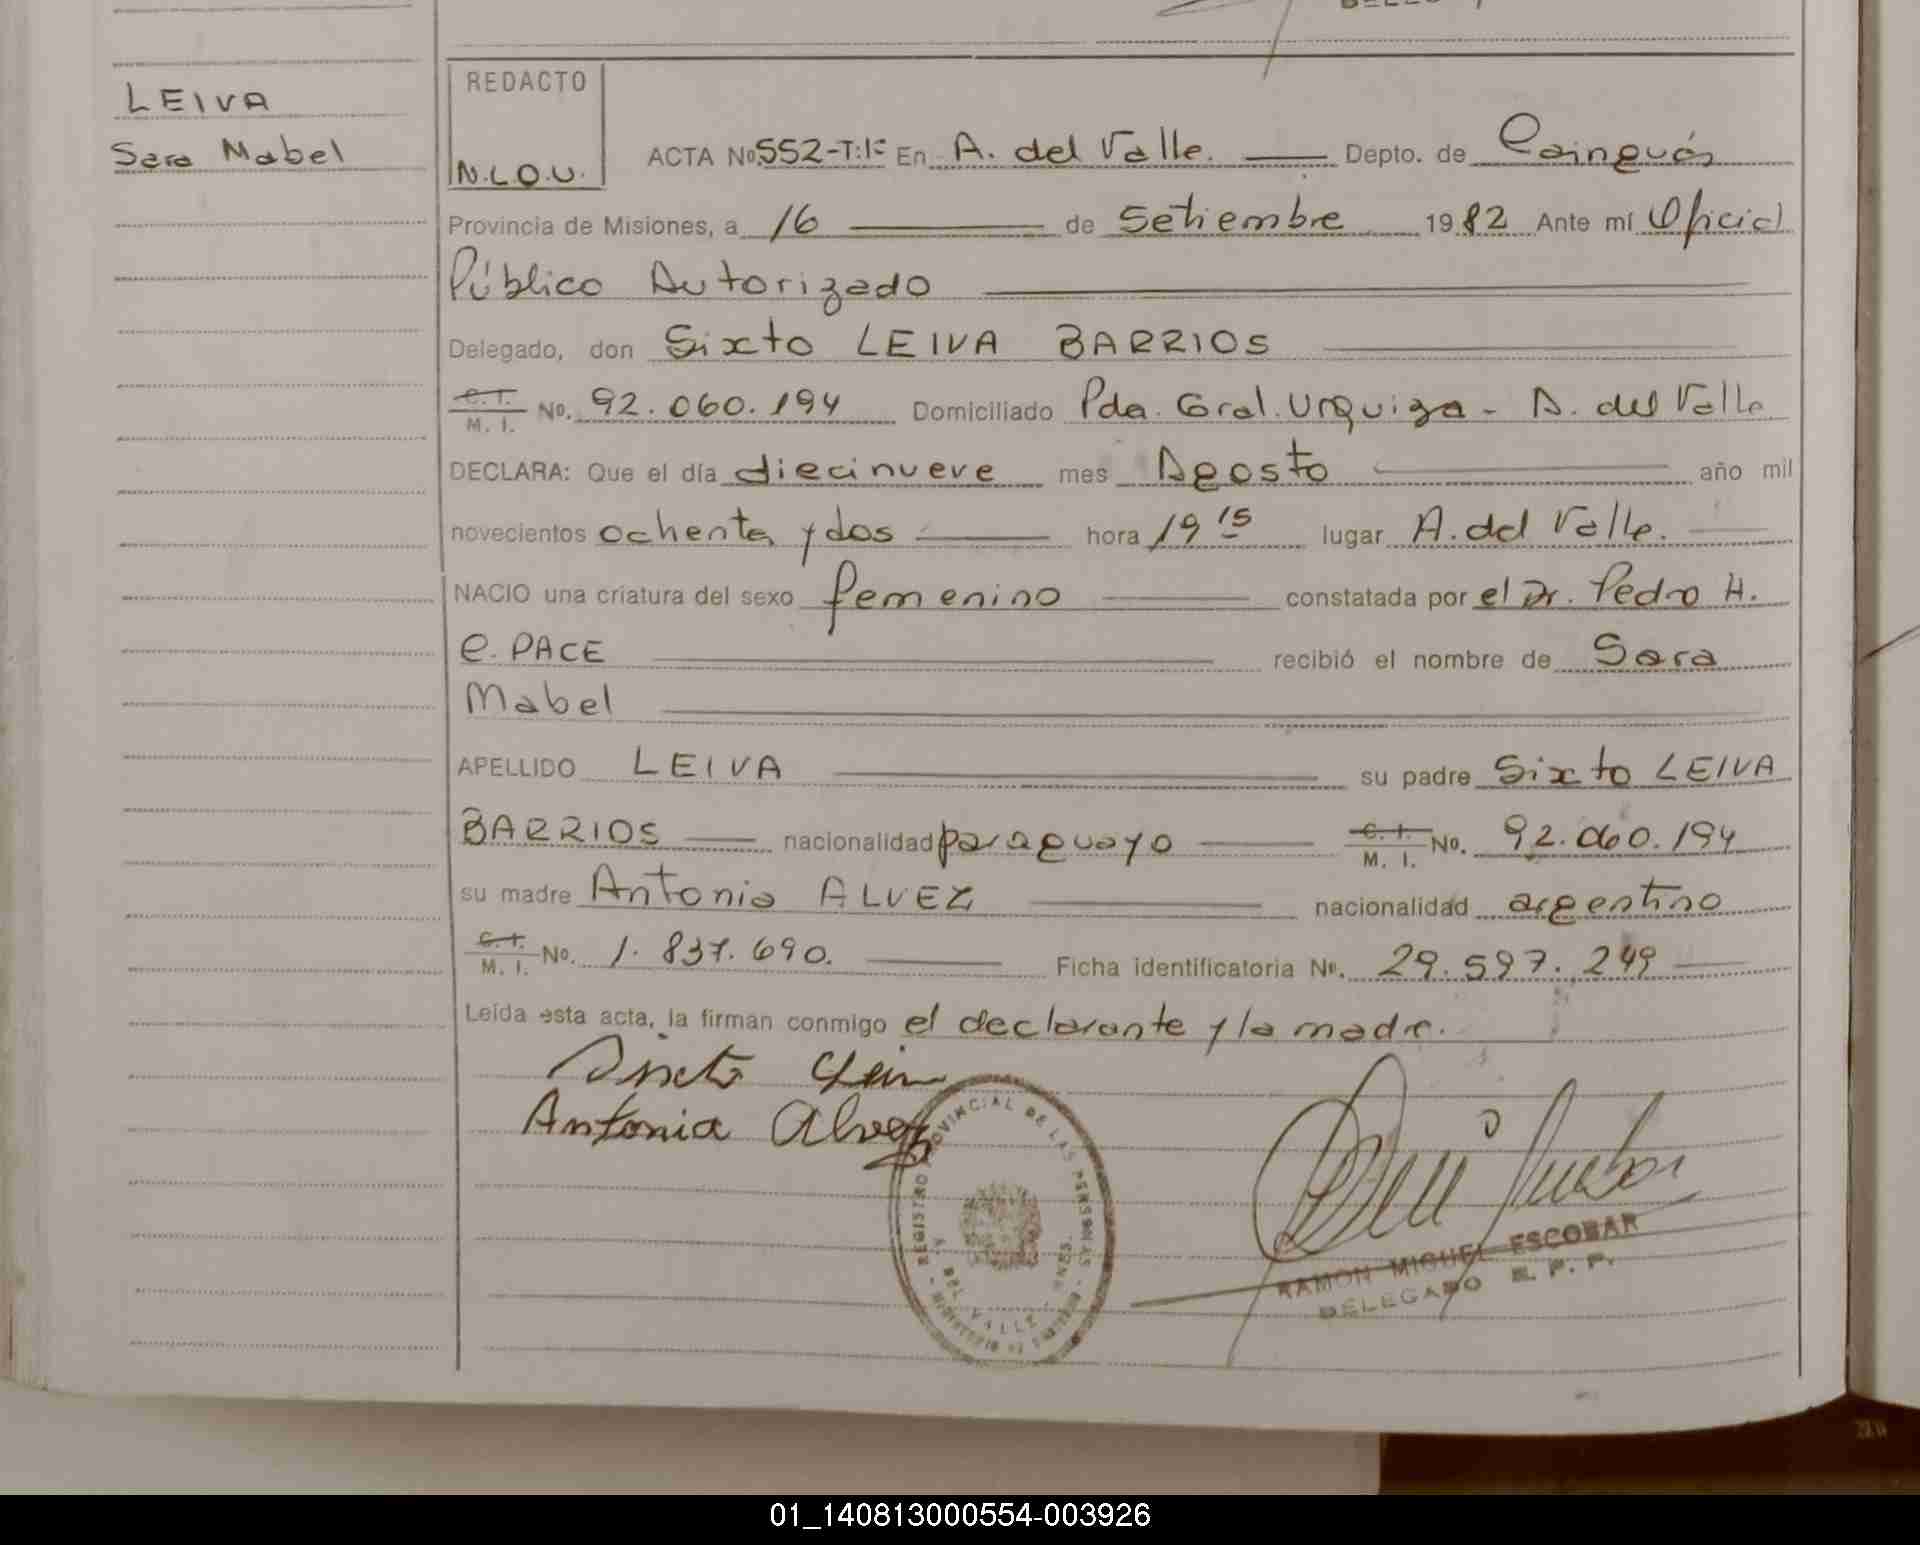 LEIVA
Sara Mabel
REDACTO
N.L.O.U.
ACTA No. 552-T:1º En A. del Valle. Depto. de Cainguás
Provincia de Misiones, a 16 de Setiembre 1982 Ante mí Oficial
Público Autorizado
Delegado, don Sixto LEIVA BARRIOS
C. I. M. I. No. 92.060.194 Domiciliado Pda. Gral. Urquiza - A. del Valle
DECLARA: Que el día diecinueve mes Agosto año mil
novecientos ochenta y dos hora 19 15 lugar A. del Valle.
NACIO una criatura del sexo femenino constatada por el Dr. Pedro H.
C. PACE recibió el nombre de Sara
Mabel
APELLIDO LEIVA su padre Sixto LEIVA
BARRIOS nacionalidad paraguayo C. I. M. I. No. 92.060.194
su madre Antonia ALVEZ nacionalidad argentino
C. I. M. I. No. 1.837.690. Ficha identificatoria No. 29.597.249
Leída esta acta, la firman conmigo el declarante y la madre.
Sixto Leiva
Antonia Alvez
REGISTRO PROVINCIAL DE LAS PERSONAS
A. DEL VALLE
RAMON MIGUEL ESCOBAR
DELEGADO R. P. P.
01_140813000554-003926